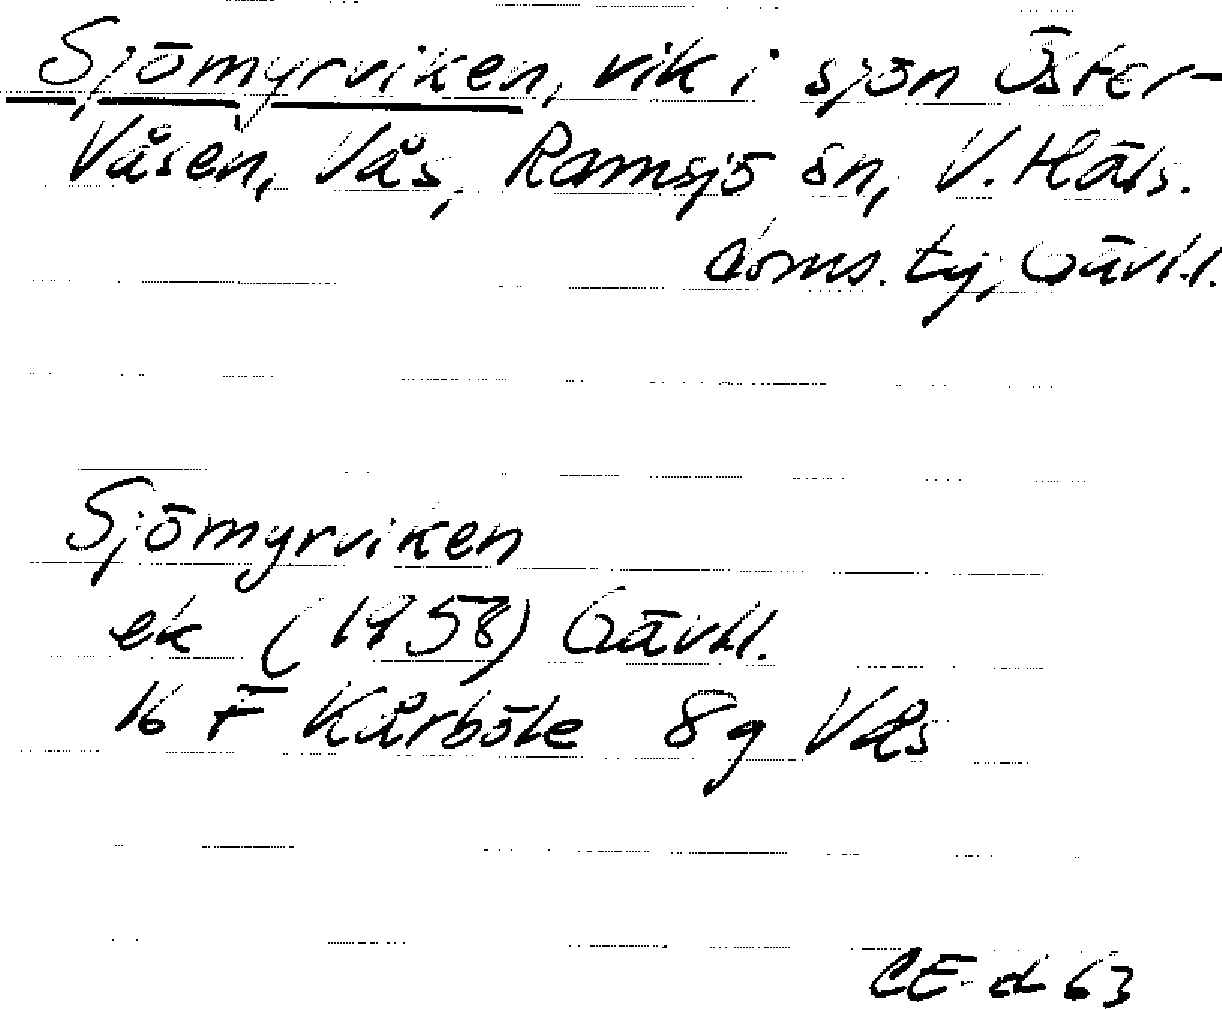 Sjömyrviken, vik i sjön Öster-
Våsen, Vås, Ramsjö sn, V. Häls.
doms. ty, Gävl.l.
Sjömyrviken
ek (1958) Gävl.l.
16 F Kårböle 8g Vås
CE-d 63